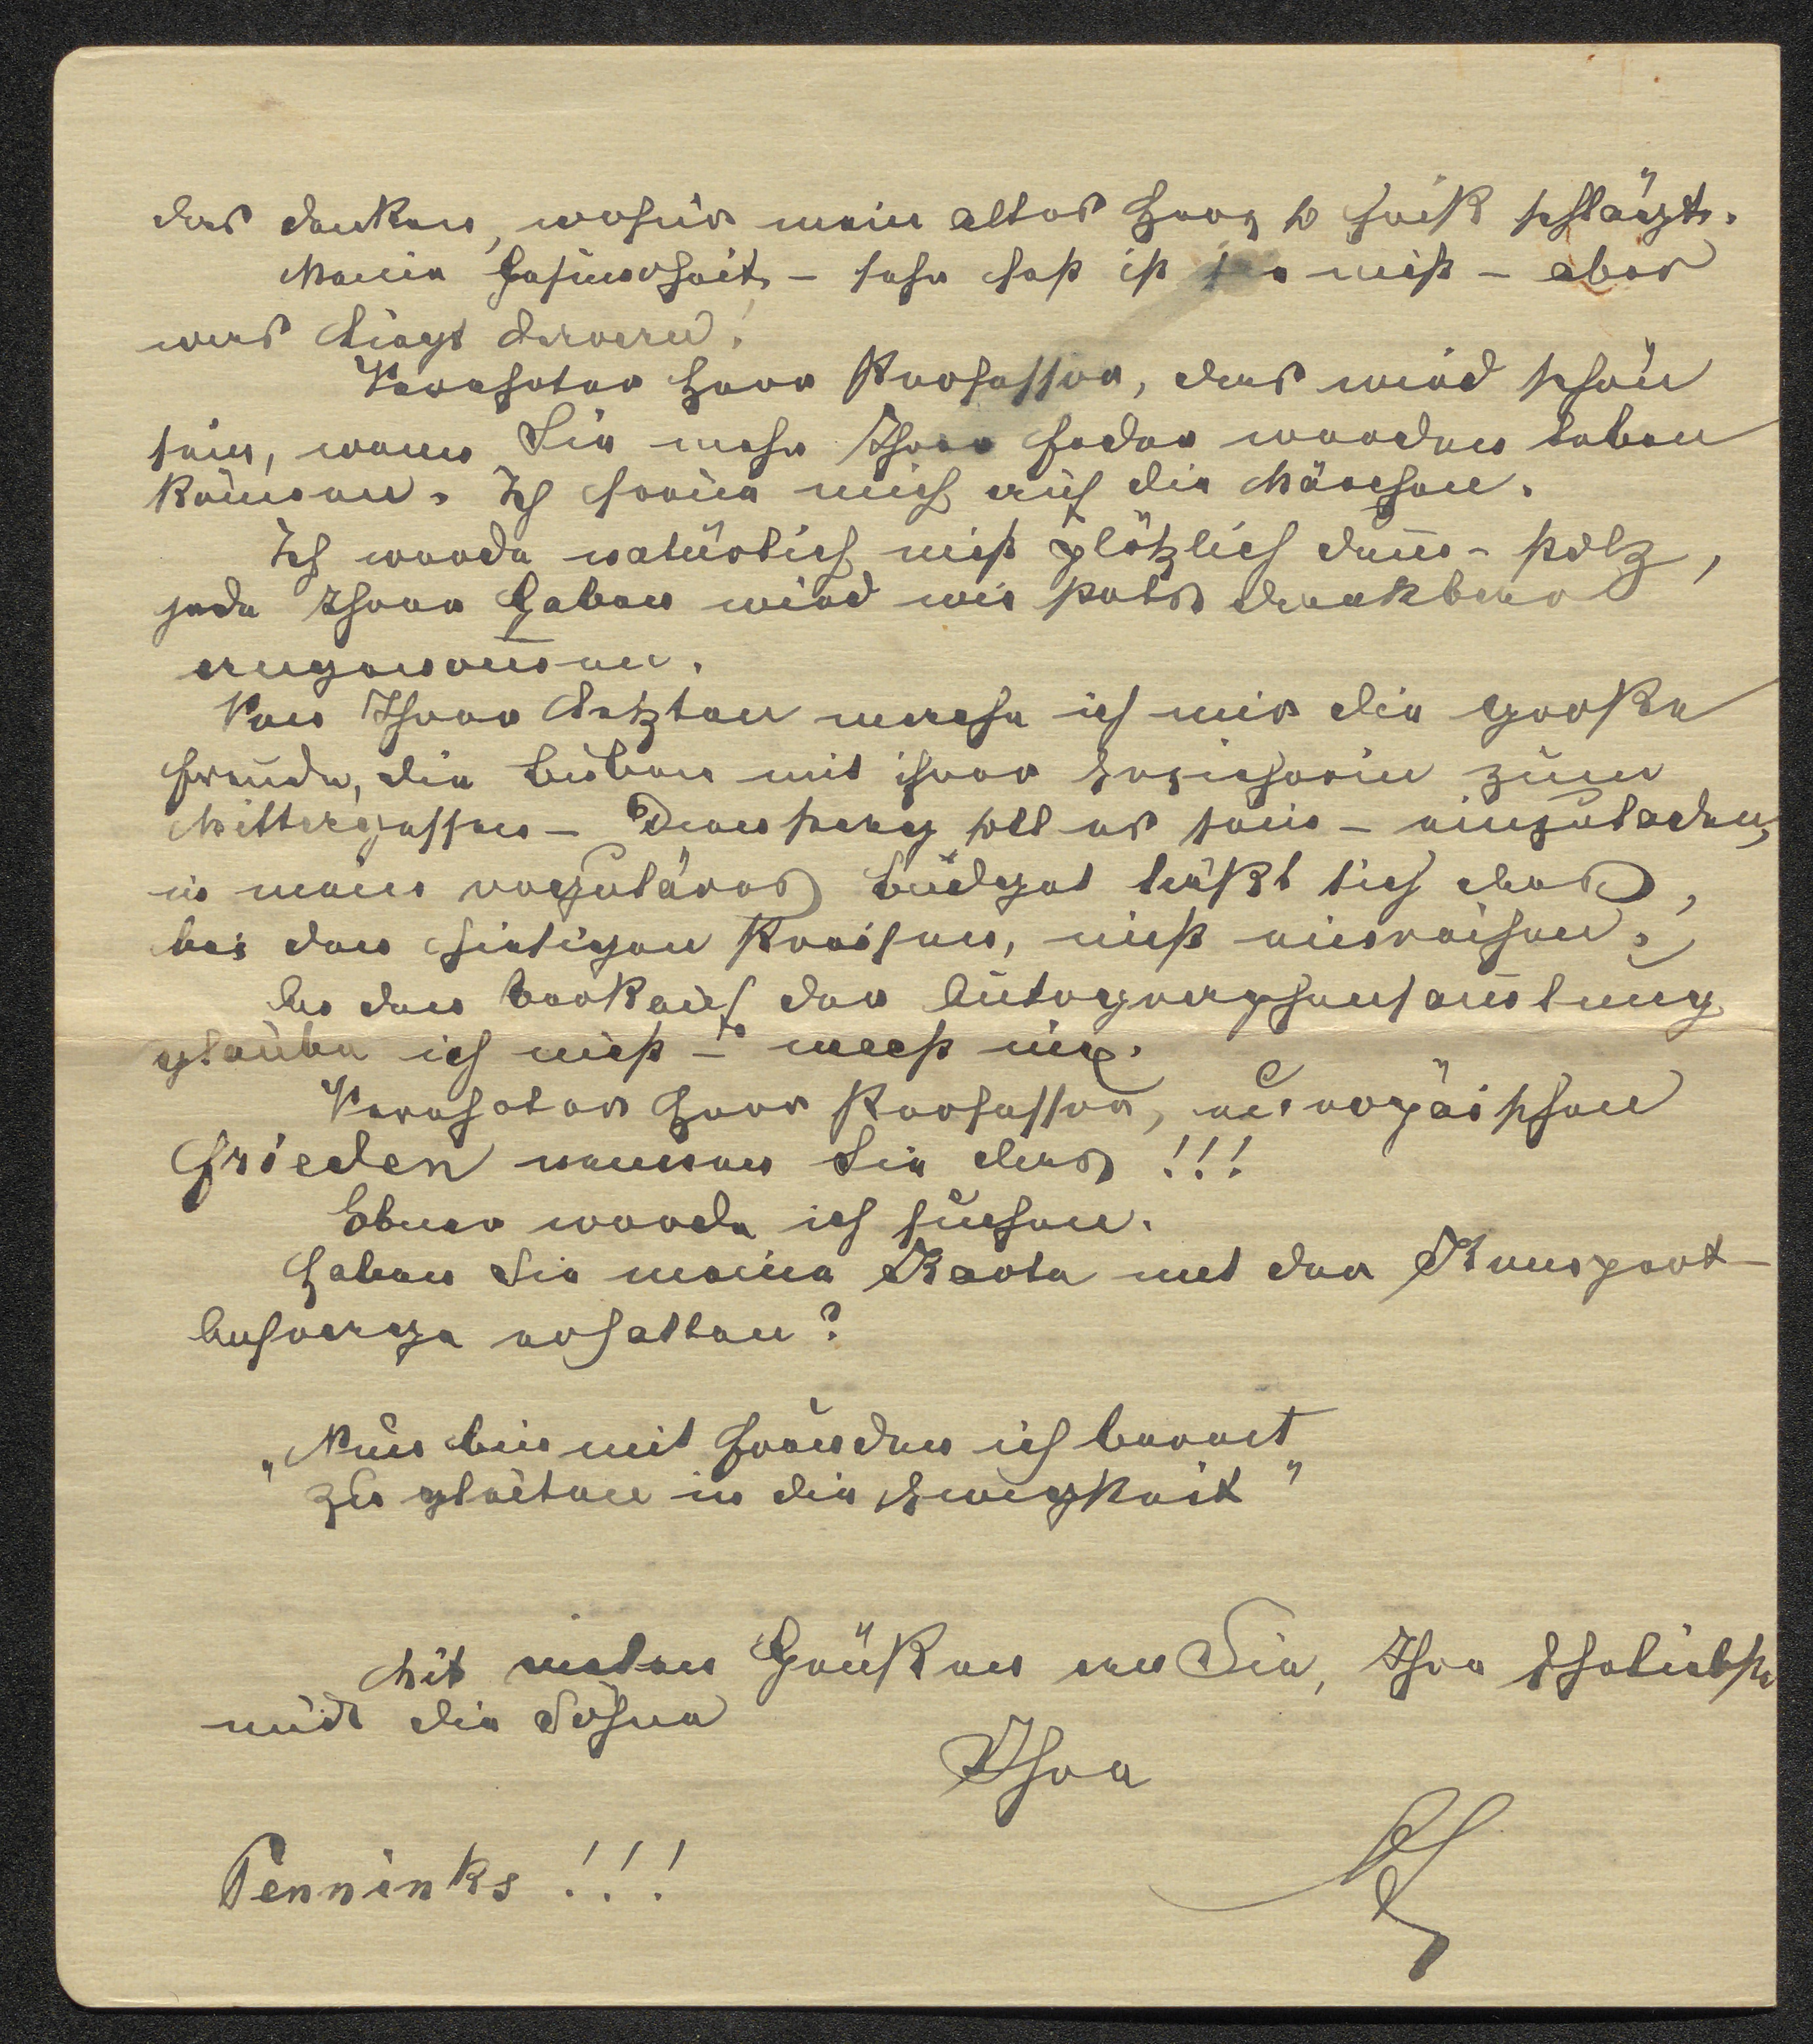 das danken, wofür mein altes Herz so heiß schlägt.
Meine Gesundheit – sehr fest ist sie nicht – aber
was liegt daran!
Verehrter Herr Professor, das wird schön
sein, wenn Sie mehr Ihrer Feder werden leben
können. Ich freue mich auf die Märchen.
Ich werde natürlich nicht plötzlich dumm-stolz,
jede Ihrer Gaben wird wie stets dankbar
angenommen.
Von Ihrer Letzten mache ich mir die große
Freude, die Buben mit ihrer Erzieherin zum
Mittagessen – Dienstag soll es sein – einzuladen,
in mein reguläres Budget läßt sich das,
bei den hiesigen Preisen, nicht einreihen.
An den Verkauf der Autographensammlung
glaube ich nicht – macht nix.
Verehrter Herr Professor, europäischen
Frieden nennen Sie das!!!
Ebner werde ich suchen.
Haben Sie meine Karte mit der Transport-
Anfrage erhalten?
„Nun bin mit Freuden ich bereit
zu gleiten in die Ewigkeit"
Mit vielen Grüßen an Sie, Ihre Eheliebste
und die Söhne
Ihre
Penninks!!!